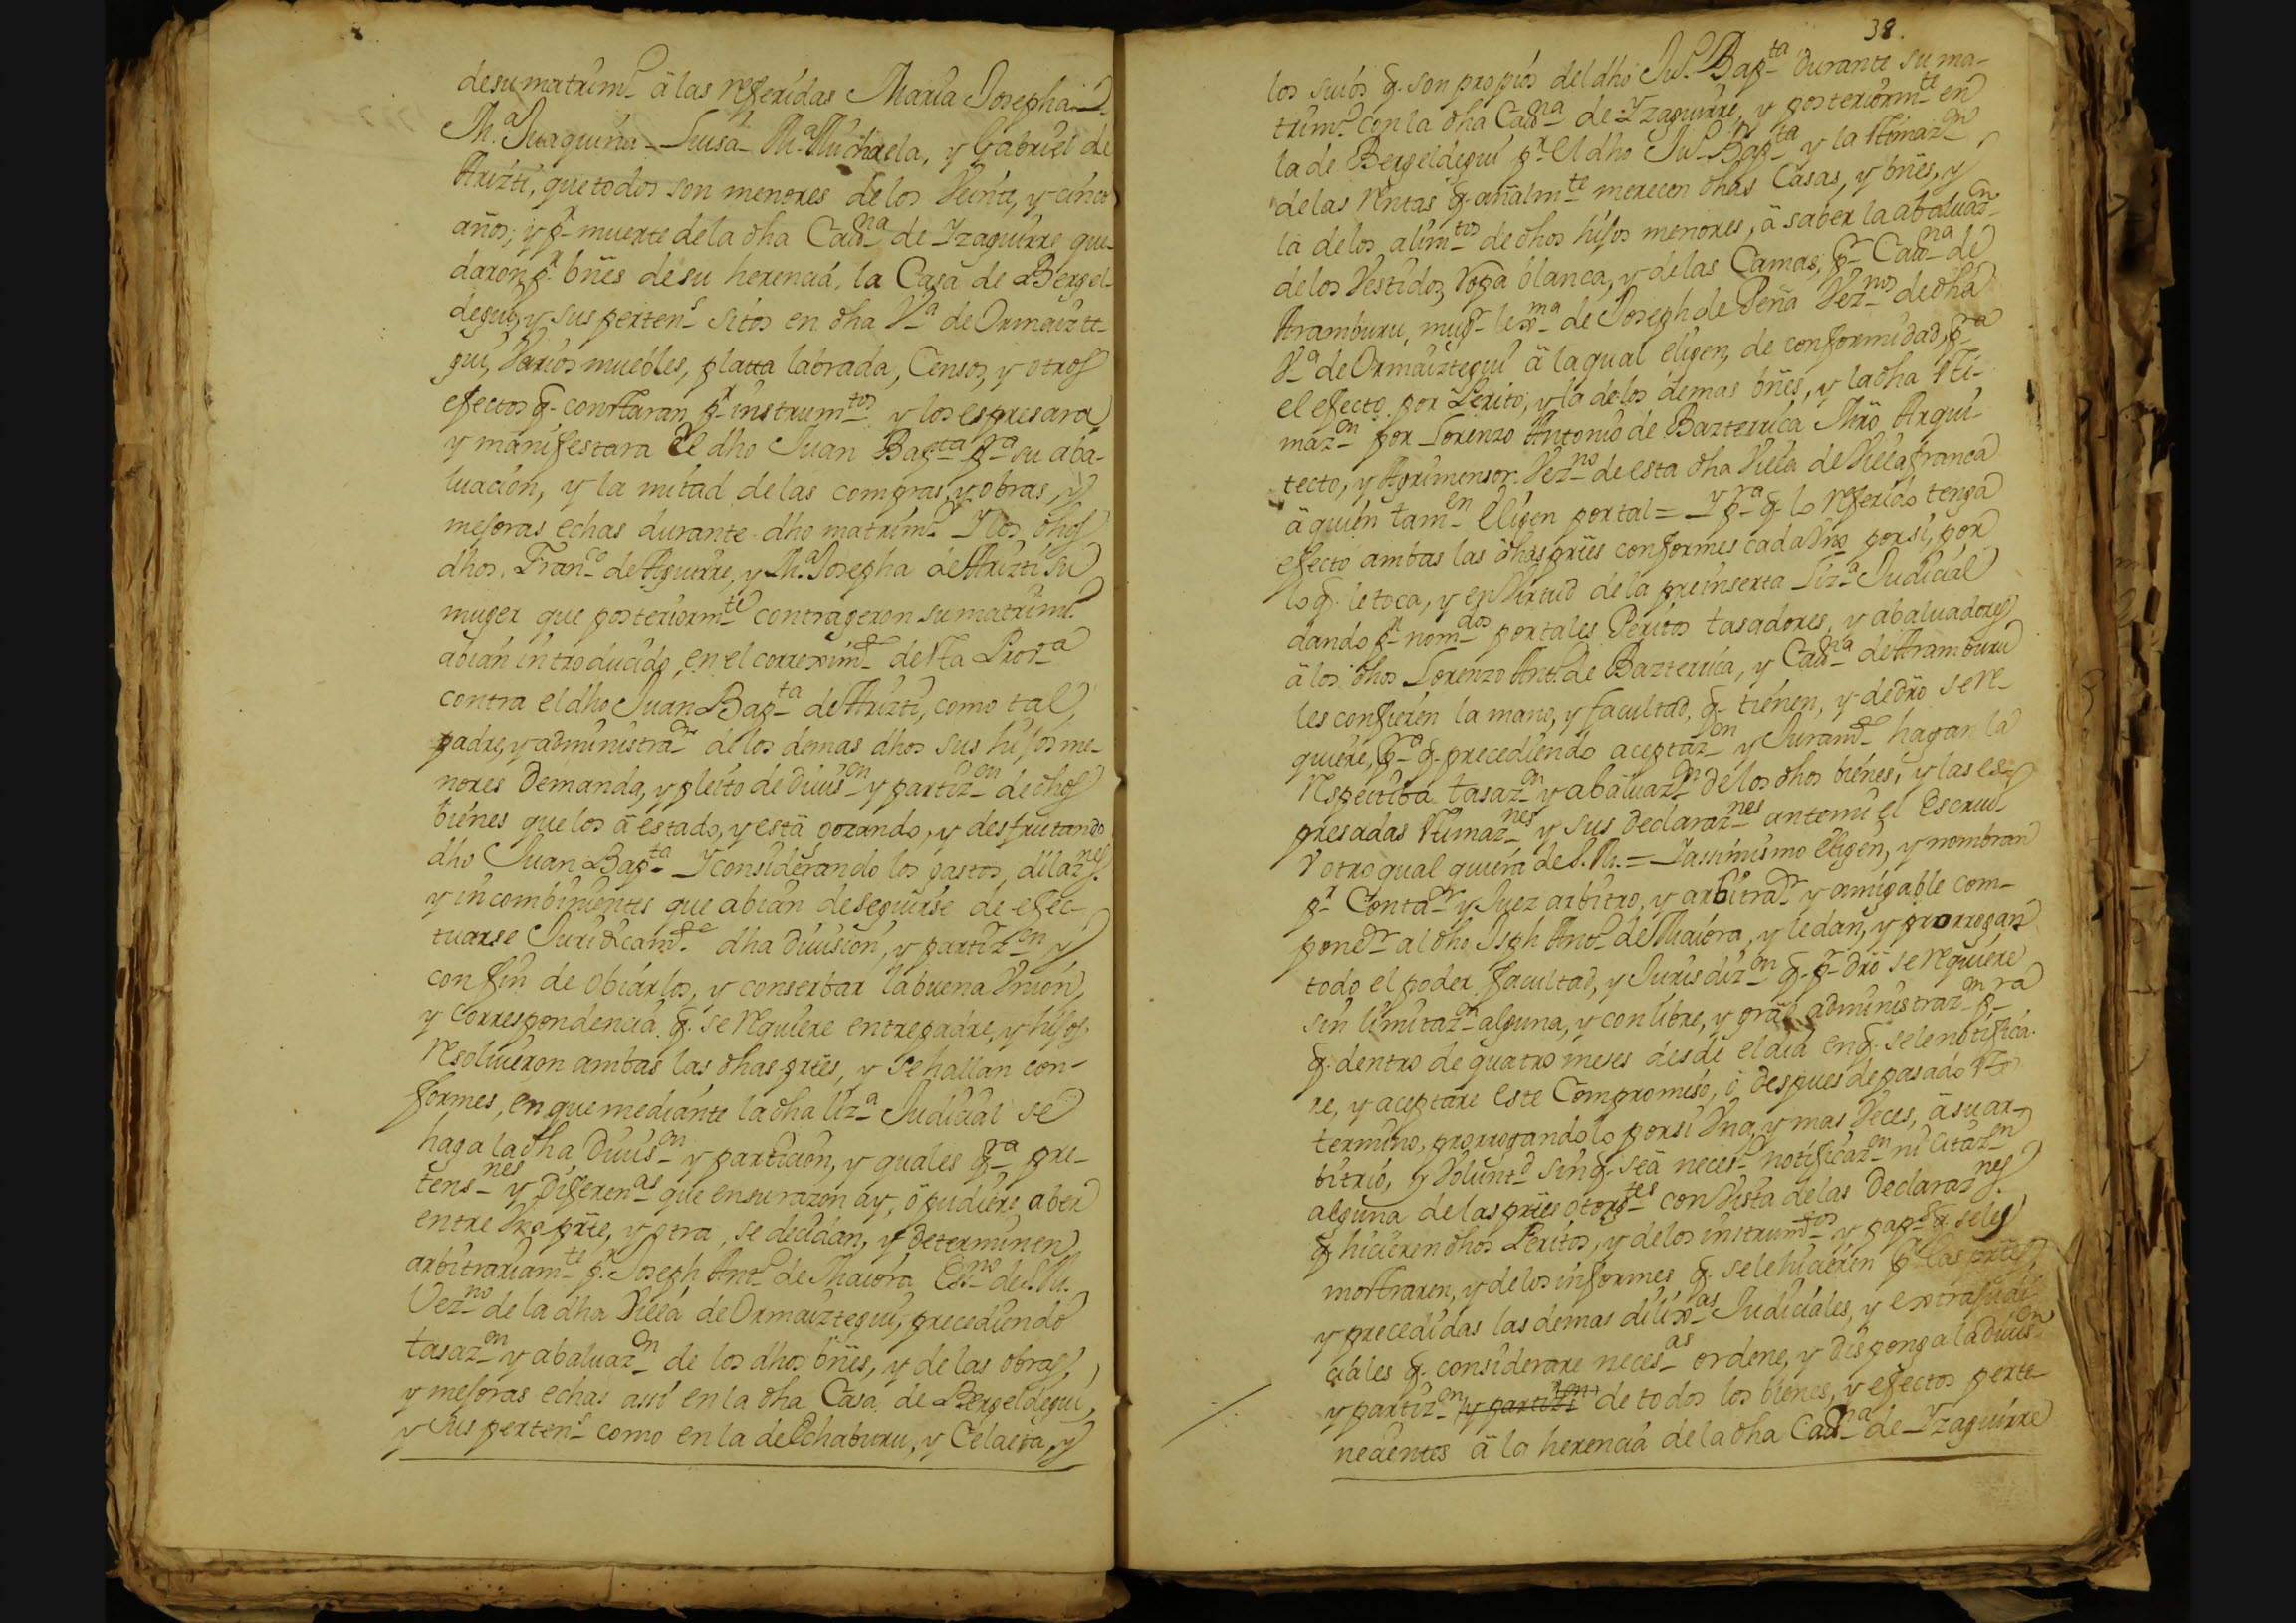 de su matrim.º â las referidas Maria Josepha
M.ª Juaquina Luisa M.ª Michaela, y Gabriel de
Arizti, que todos son menores de los Veinte, y cinco
años; y p.r muerte de la dha Cat.na de Yzaguirre que-
daron p.r bñes de su herencia, la Casa de Bergel-
degui, y sus perten.s sitos en dha V.ª de Ormaizte-
gui, Varios muebles, platta labrada, Censos, y otros
efectos q. constaran p.r instrum.tos y los espresara,
y manifestara el dho Juan Bap.ta p.ra su aba-
luacion, y la mitad de las compras, y obras, y
mejoras echas durante dho matrim.º Y los dhos
dhos Fran.co de Aguirre, y M.ª Josepha de Arizti su
muger que posteriorm.te contrageron su matrim.º
abian introducido en el correxim.to desta Prov.ª
contra el dho Juan Bap.ta de Arizti, como tal
padre, y administra.dr de los demas dhos sus hijos me-
nores Demanda, y pleito de Divis.on y partiz.on de dhos
bienes que los â estado, y està gozando, y desfrutando
dho Juan Bap.ta Y considerando los gastos, dilaz.nes
y incombinientes que abian de seguirse de efec-
tuarse Juridicam.te dha division, y partiz.on y
con fin de obiarlos, y conserbar la buena Union,
y correspondencia q. se requiere entre padre, y hijos
resolvieron ambas las dhas prtes, y se hallan con-
formes, en que mediante la dha liz.ª Judicial se
haga la dha Divis.on y particion, y quales q.ra pre-
tens.nes y Diferen.as que en su razon ay, ô pudiere aber
entre Una prte, y otra, se decidan, y determinen
arbitrariam.te p.r Joseph Ant.º de Maiora Ess.no de S.M.
Vez.no de la dha Villa de Ormaiztegui, precediendo
tasaz.on y abaluaz.on de los dhos bñes, y de las obras,
y mejoras echas assi en la dha Casa de Bergeldegui,
y sus perten.s como en la de Echaburu, y Celaeta, y
38.
los suios q. son propios del dho Ju.º Bap.ta durante su ma-
trim.º con la dha Cat.na de Yzaguirre, y posteriorm.te en
la de Bergeldegui p.r el dho Ju.º Bap.ta y la stimaz.on
de las rentas q. añalm.te merecen dhas Casas, y bñes, y
la de los alim.tos de dhos hijos menores, â saber la abaluaz.on
de los Vestidos, ropa blanca, y de las Camas, p.r Cat.na de
Aramburu, mug.r lex.ma de Joseph de Peña Vez.nos de dha
V.ª de Ormaiztegui â la qual eligen, de conformidad, p.ra
el efecto por Perito, y la de los demas bñes, y la dha sti-
maz.on por Lorenzo Antonio de Bazterrica Mrõ Arqui-
tecto, y Agrimensor Vez.no de esta dha Villa de Villafranca
â quien tam.en eligen por tal = Y p.ra q. lo referido tenga
efecto ambas las dhas prtes conformes cada Uno por si, por
lo q. le toca, y en Virtud de la preinserta Liz.ª Judicial
dando p.r nom.dos por tales Peritos tasadores, y abaluadores
â los dhos Lorenzo Ant.º de Bazterrica, y Cat.na de Aramburu
les confieren la mano, y facultad, q. tienen, y de drõ se re-
quiere, p.ª q. precediendo aceptaz.on y Juram.to hagan la
respectiba tasaz.on y abaluaz.on de los dhos bienes, y las es-
presadas stimaz.nes y sus declaraz.nes ante mi el Escriv.o
û otro qual quiera de S.M. = Y assimismo eligen, y nombran
p.r Conta.dr y Juez arbitro, y arbitra.dr y amigable com-
pone.dr al dho Jsph Ant.º de Maiora, y le dan, y prorrogan
todo el poder facultad, y Jurisdiz.on q. p.r drõ se requiere
sin limitaz.on alguna, y con libre, y grãl administraz.on p.ra
q. dentro de quatro meses desde el dia en q. se le notifica-
re, y aceptare este Compromiso, ô despues de pasado ste
termino, prorrogandolo por si Una, y mas Veces, â su ar-
bitrio, y Volunt.d sin q. sea neces.º notificaz.on ni citaz.on
alguna de las prtes otorg.tes con Vista de las Declaraz.nes
q. hicieren dhos Peritos, y de los instrum.tos y pap.s q. se les
mostraren, y de los informes q. se le hicieren p.r las prtes,
y precedidas las demas dilix.as Judiciales, y extrajudi-
ciales q. considerare neces.as ordene, y disponga la Divis.on
y partiz.on y partiz.on de todos los bienes, y efectos perte-
necientes â la herencia de la dha Cat.na de Yzaguirre